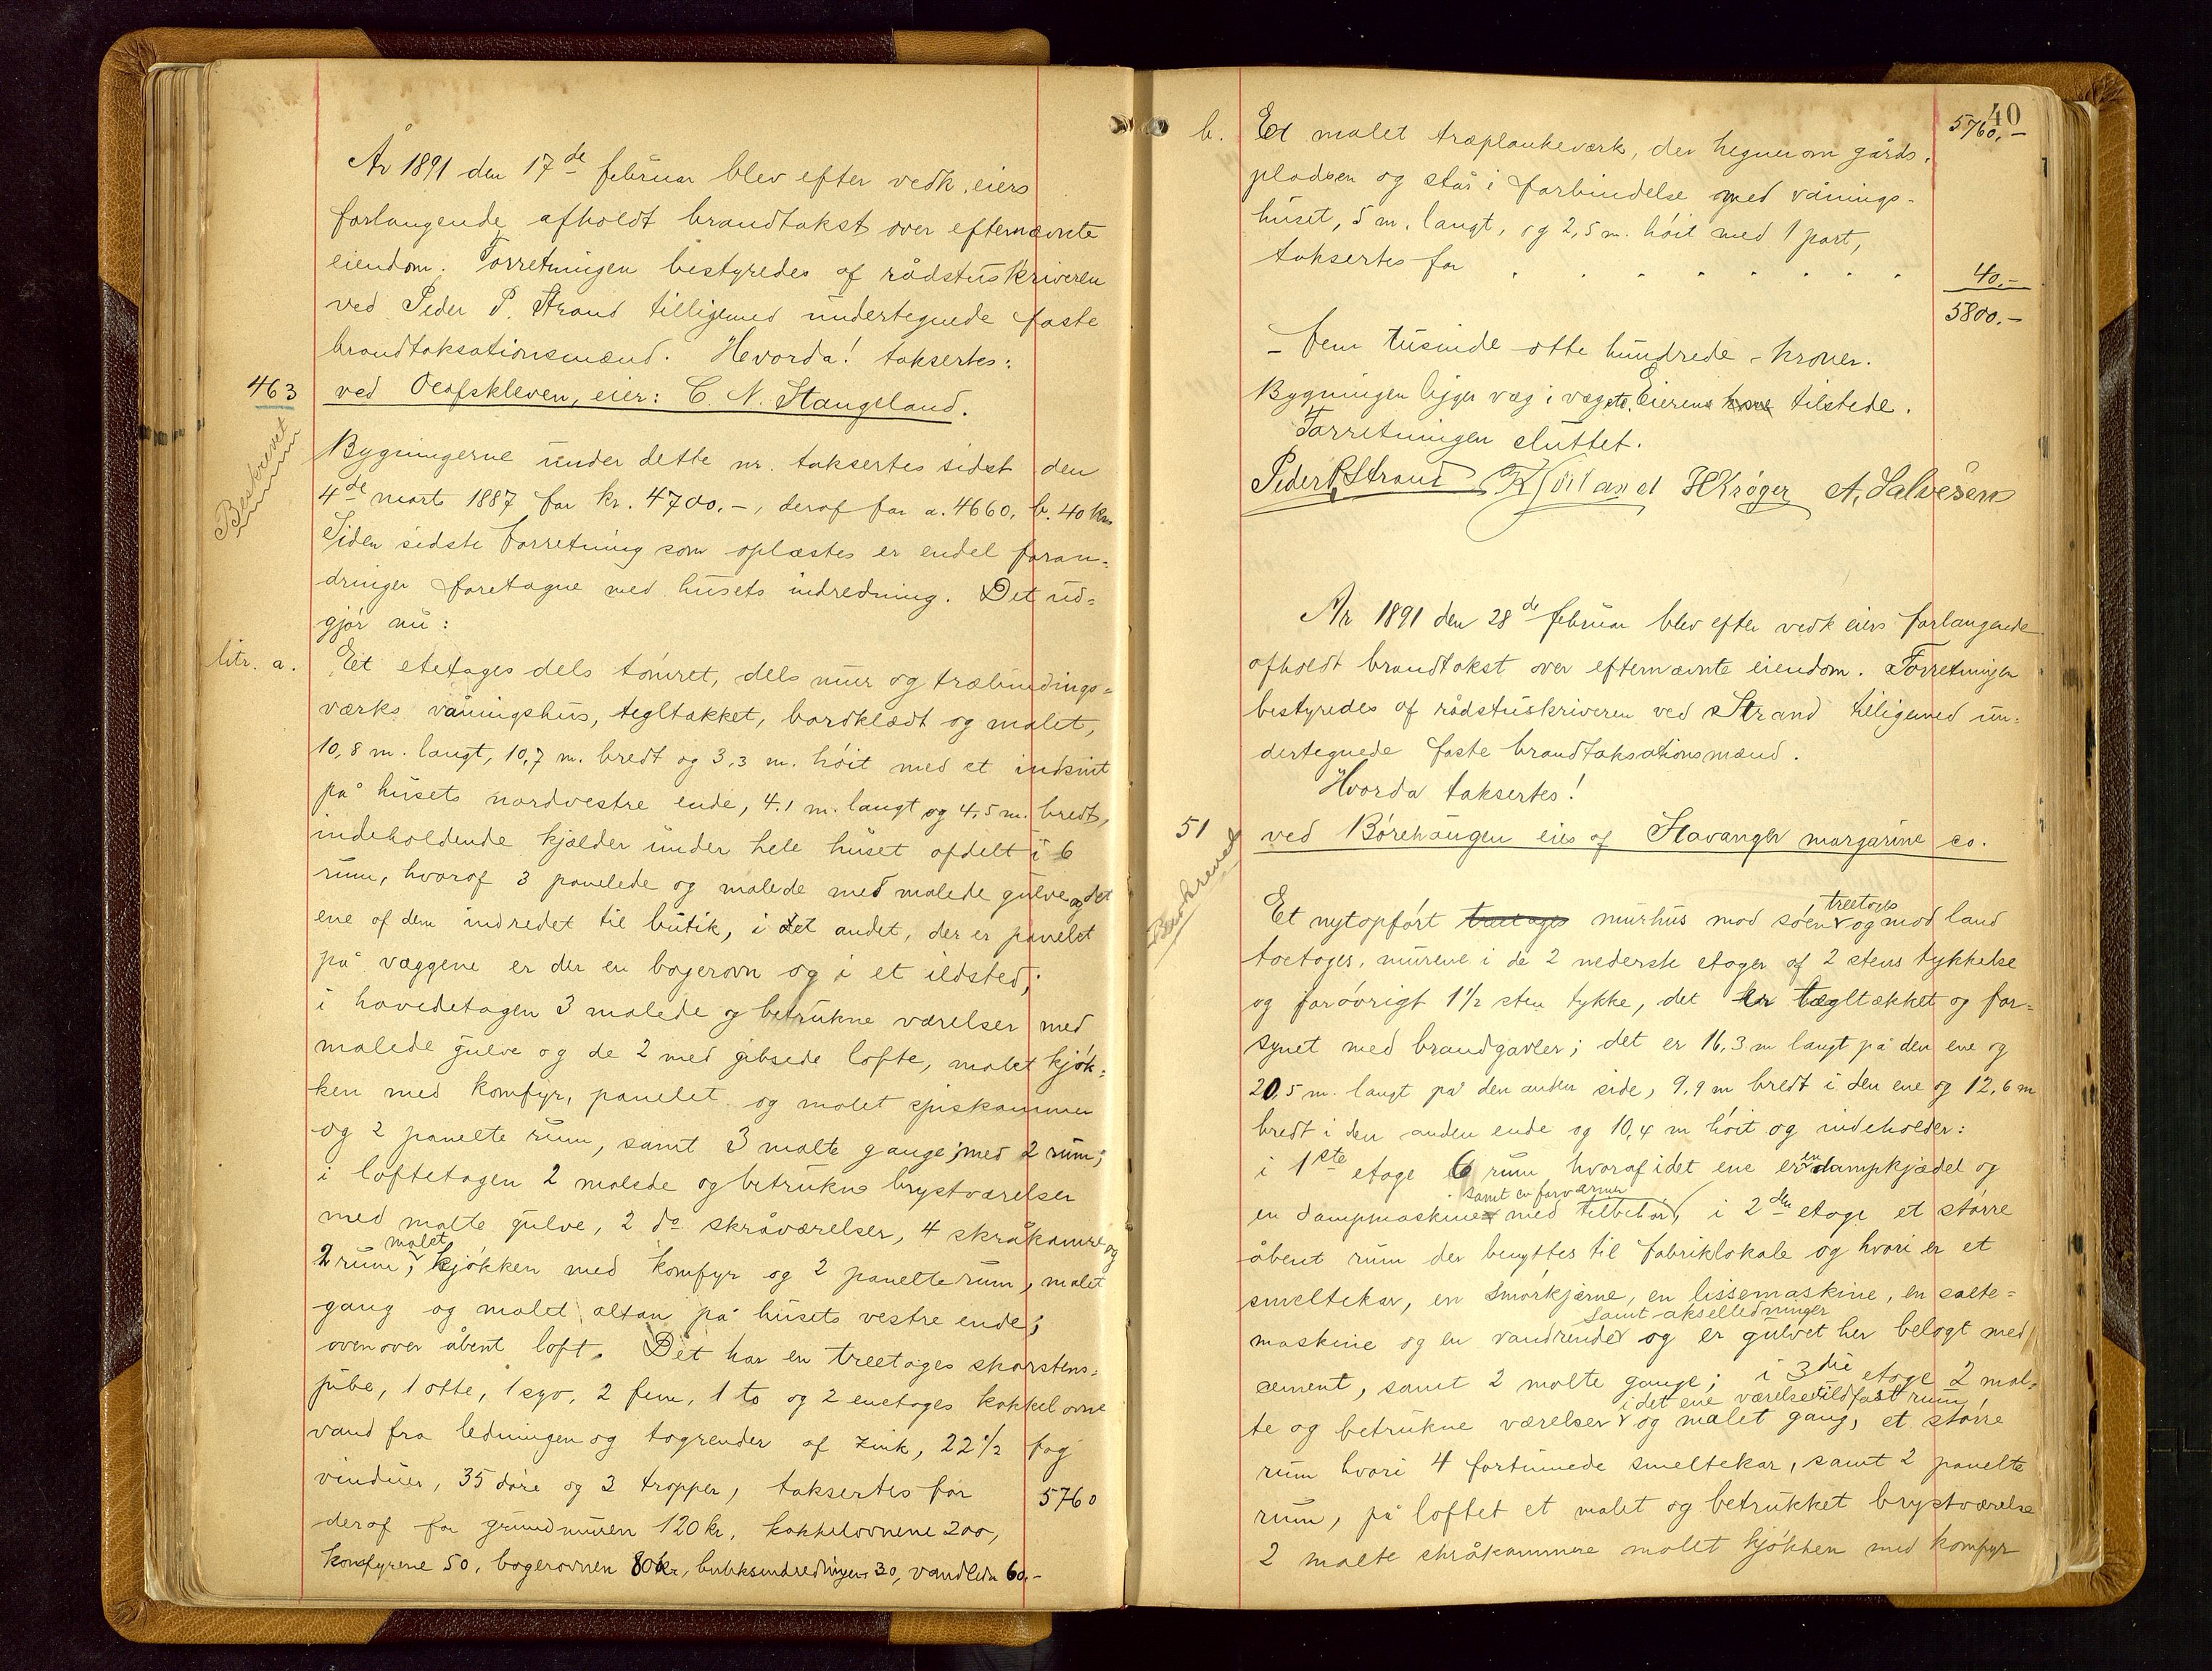 År 1891 den 17de februar blev efter vedk. eiers
forlangende afholdt brandtakst over efternævnte
eiendom. Forretningen bestyredes af rådstuskriveren
ved Peder P. Strand tilligemed undertegnede faste
brandtaksationsmænd. Hvorda! taksertes:
463 ved Olafskleven, eier: C. N. Stangeland.
Beskrevet
Bygningerne under dette nr. taksertes sidst den
4de marts 1887 for kr. 4700.-, deraf for a. 4660, b. 40 kr
Siden sidste forretning som oplæstes er endel foran-
dringer foretagne med husets indredning. Det ud-
gjør nu:
litr. a. Eet etetages dels tømret, dels mur og træbindings-
værks våningshus, tegltækket, bordklædt og malet,
10,8 m. langt, 10,7 m. bredt og 3,3 m. høit med et indsnit
på husets nordvestre ende, 4.1 m. langt og 4,5 m. bredt,
indeholdende kjælder under hele huset afdelt i 6
rum, hvoraf 3 panelede og malede med malede gulve og det
ene af dem indredet til butik, i det andet, der er panelet
på væggene er der en bagerovn og i et ildsted;
i hovedetagen 3 malede og betrukne værelser med
malede gulve og de 2 med gibsede lofte, malet kjøk-
ken med komfyr, panelet og malet spiskammer
og 2 panelte rum, samt 3 malte gange, med 2 rum;
i loftetagen 2 malede og betrukne brystværelser
med malte gulve, 2 do skråværelser, 4 skråkamre og
2 rum, malet kjøkken med komfyr og 2 panelte rum, malet
gang og malet altan på husets vestre ende;
ovenover åbent loft. Det har en treetages skorstens-
pibe, 1 otte, 1 syv, 2 fem, 1 to og 2 enetages kakkelovne
vand fra ledningen og tagrender af zink, 22 1/2 fag
vinduer, 35 døre og 3 trapper, taksertes for 5760
deraf for grundmuren 120 kr, kakkelovnene 200,
komfyrene 50, bagerovnen 80 kr, butiksindredningen 30, vandledn 60.-
40
5760.-
b. Et malet træplankeværk, der hegner om gårds-
pladsen og står i forbindelse med vånings-
huset, 5 m. langt, og 2,5 m. høit med 1 port,
taksertes for . . . . . . . 40.-
5800.-
- fem tusinde otte hundrede - kroner.
Bygningen ligger væg i væg etc. Eierens tilstede.
Forretningen sluttet.
Peder P. Strand HKrøger A. Salvesen
År 1891 den 28de februar blev efter vedk eiers forlangende
afholdt brandtakst over efternævnte eiendom. Forretningen
bestyredes af rådstuskriveren ved Strand tilligemed un-
dertegnede faste brandtaksationsmænd.
Hvorda taksertes!
51 ved Børehaugen eies af Stavanger margarine co.
Beskrevet
Et nytopført treetages murhus mod søen treetages og mod land
toetages, murene i de 2 nederste etager af 2 stens tykkelse
og forøvrigt 1 1/2 sten tykke, det er tegltækket og for-
synet med brandgavler; det er 16,3 m langt på den ene og
20,5 m. langt på den anden side, 9,9 m bredt i den ene og 12,6 m
bredt i den anden ende og 10,4 m høit og indeholder:
i 1ste etage 6 rum hvoraf i det ene er en dampkjædel og
en dampmaskine samt en forvarmer med tilbehør, i 2den etage et større
åbent rum der benyttes til fabriklokale og hvori er et
smeltekar, en smørkjærne, en lissemaskine, en salte-
maskine og en vandrende samt akselledninger og er gulvet her belagt med
cement, samt 2 malte gange; i 3die etage 2 mal-
te og betrukne værelser i det ene værelse ildfast rum og malet gang, et større
rum hvori 4 fortinnede smeltekar, samt 2 panelte
rum, på loftet et malet og betrukket brystværelse
2 malte skråkammere malet kjøkken med komfyr